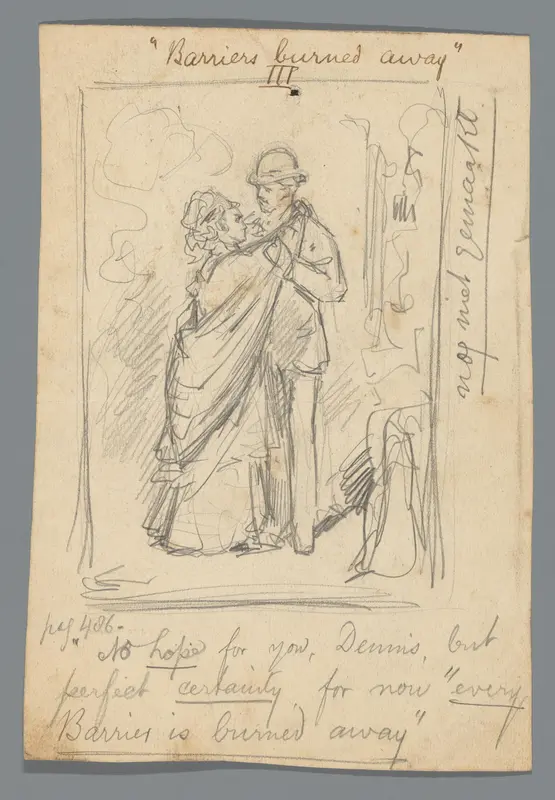 "Barriers burned away"
III
nog niet gemaakt.
pag 486.
"No hope for you, Dennis, but
perfect certainty, for now "every
Barrier is burned away"